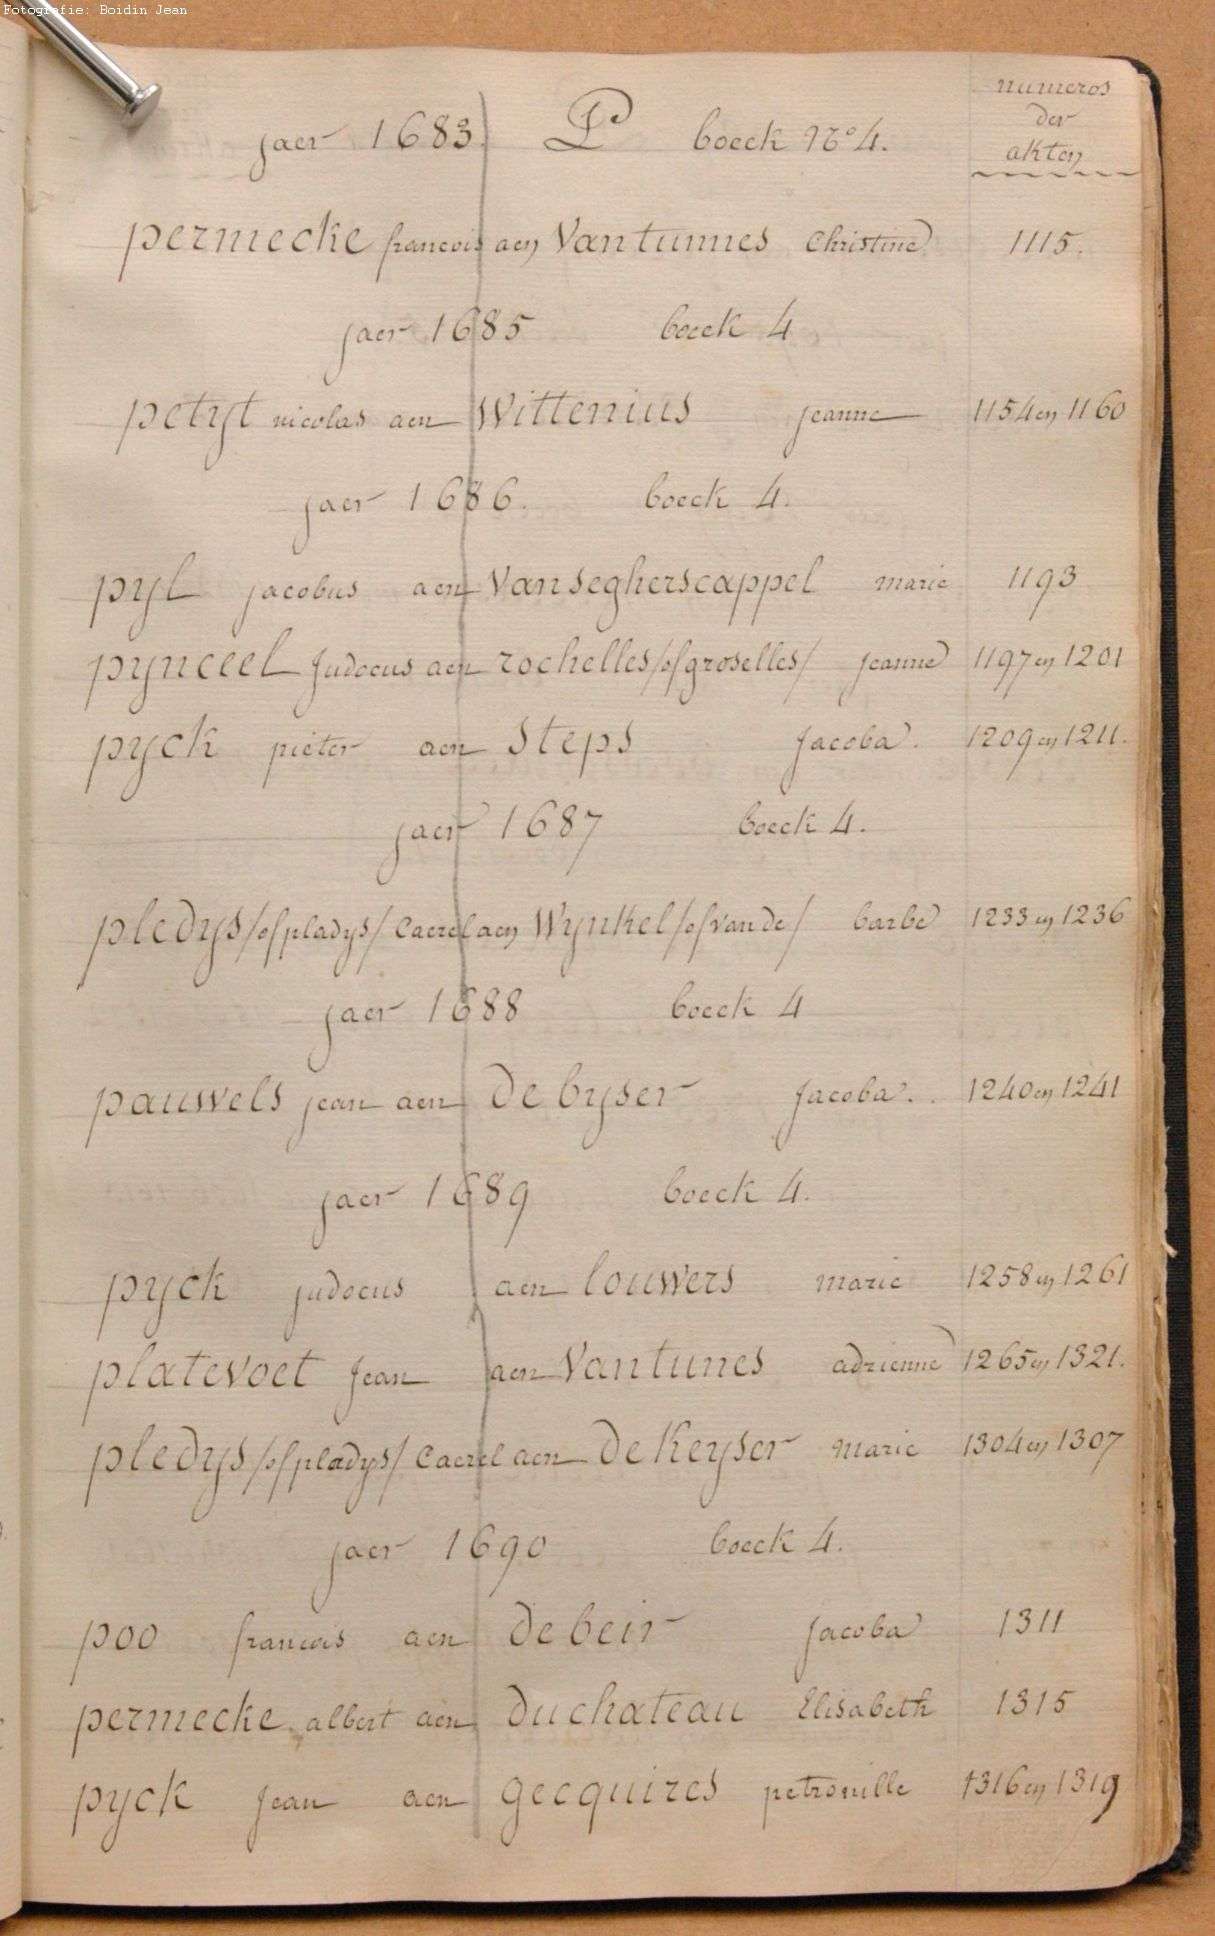 Fotografie: Boidin Jean
numeros
der
akten
jaer 1683. P boeck No 4.
permecke francois aen Vantunnes Christine 1115.
jaer 1685 boeck 4
petyt nicolas aen Wittenius jeanne 1154 en 1160
jaer 1686. boeck 4.
pyl jacobus aen Vansegherscappel marie 1193
pynceel Judocus aen rochelles /of groselles/ jeanne 1197 en 1201
pyck pieter aen Steps Jacoba. 1209 en 1211.
jaer 1687 boeck 4.
pledys /of pladys/ Caerel aen Wynkel /of Van de/ barbe 1233 en 1236
jaer 1688 boeck 4
pauwels jean aen De byser Jacoba. 1240 en 1241
jaer 1689 boeck 4.
pyck judocus aen louwers marie 1258 en 1261
platevoet Jean aen Vantunes adrienne 1265 en 1321.
pledys /of pladys/ Caerel aen De Keyser marie 1304 en 1307
jaer 1690 boeck 4.
poo francois aen De beir Jacoba 1311
permecke albert aen Duchateau Elisabeth 1315
pyck Jean aen gecquires petronille 1316 en 1319